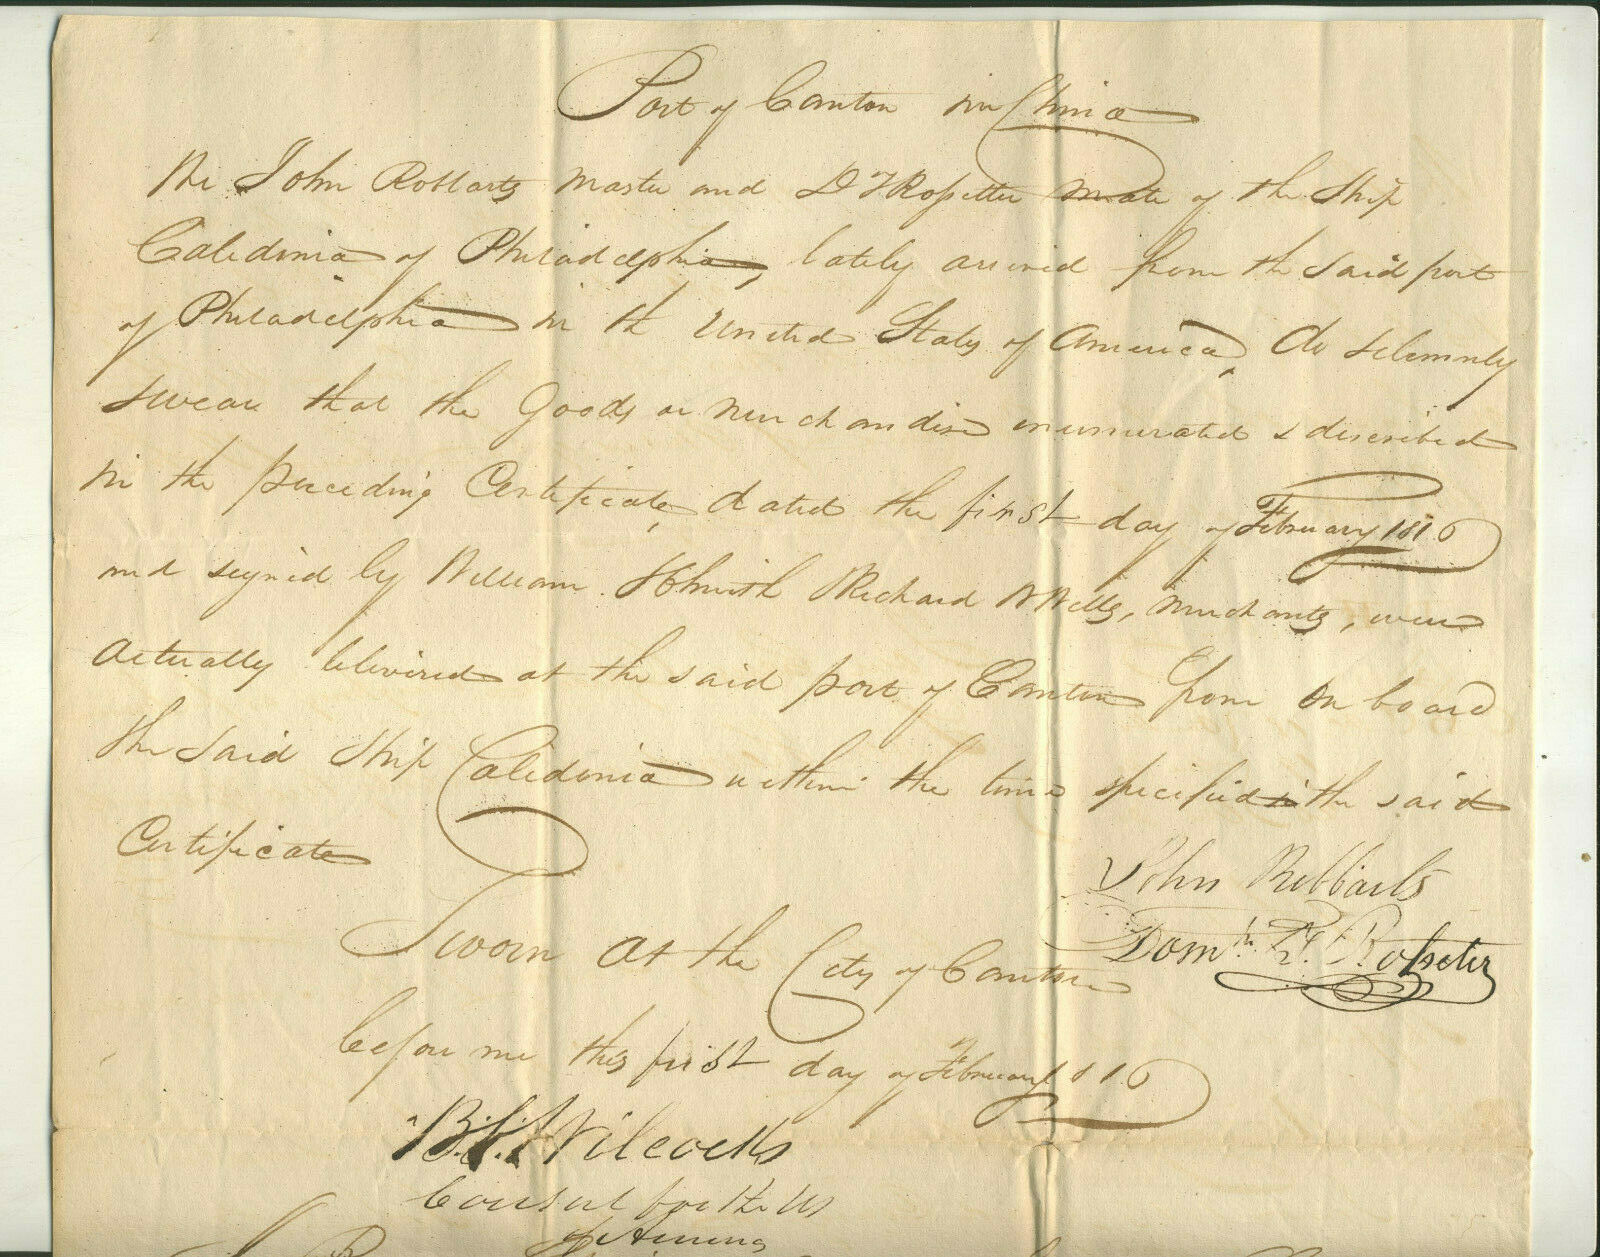 Port of Canton in China
We John Robbarts master and D F Rossetter mate of the Ship
Caledonia of Philadelphia, lately arrived from the said port
of Philadelphia in the United States of America, do solemnly
swear that the Goods or merchandise enumerated & described
in the preceding Certificate, dated the first day of February 1816
and signed by William Smith Richard W Wells, merchants, were
actually delivered at the said port of Canton from on board
the said Ship Caledonia within the time specified in the said
Certificate
John Robbarts
Domk. F. Rosseter
Sworn at the City of Canton
before me this first day of February 1816
B. C. Wilcocks
Consul for the US
of America